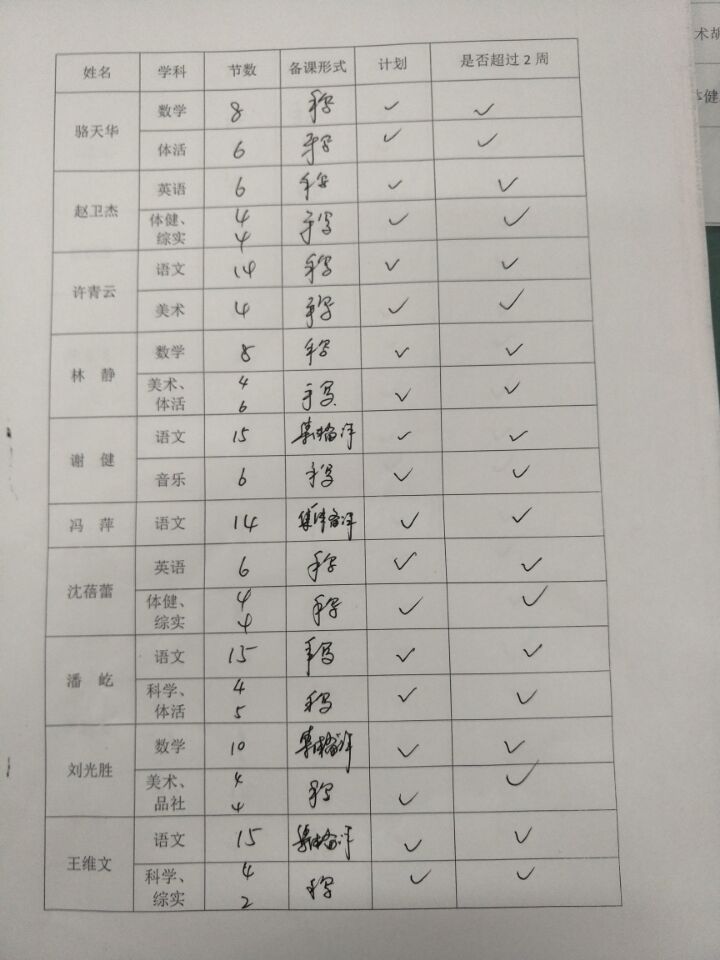 姓名 学科 节数 备课形式 计划 是否超过2周
骆天华 数学 8 手写 ✓ ✓
体活 6 手写 ✓ ✓
赵卫杰 英语 6 手写 ✓ ✓
体健、 4
综实 4 手写 ✓ ✓
许青云 语文 14 手写 ✓ ✓
美术 4 手写 ✓ ✓
林静 数学 8 手写 ✓ ✓
美术、 4
体活 6 手写 ✓ ✓
谢健 语文 15 集体备课 ✓ ✓
音乐 6 手写 ✓ ✓
冯萍 语文 14 集体备课 ✓ ✓
沈蓓蕾 英语 6 手写 ✓ ✓
体健、 4
综实 4 手写 ✓ ✓
潘屹 语文 15 手写 ✓ ✓
科学、 4
体活 5 手写 ✓ ✓
刘光胜 数学 10 集体备课 ✓ ✓
美术、 4
品社 4 手写 ✓ ✓
王维文 语文 15 集体备课 ✓ ✓
科学、 4
综实 2 手写 ✓ ✓